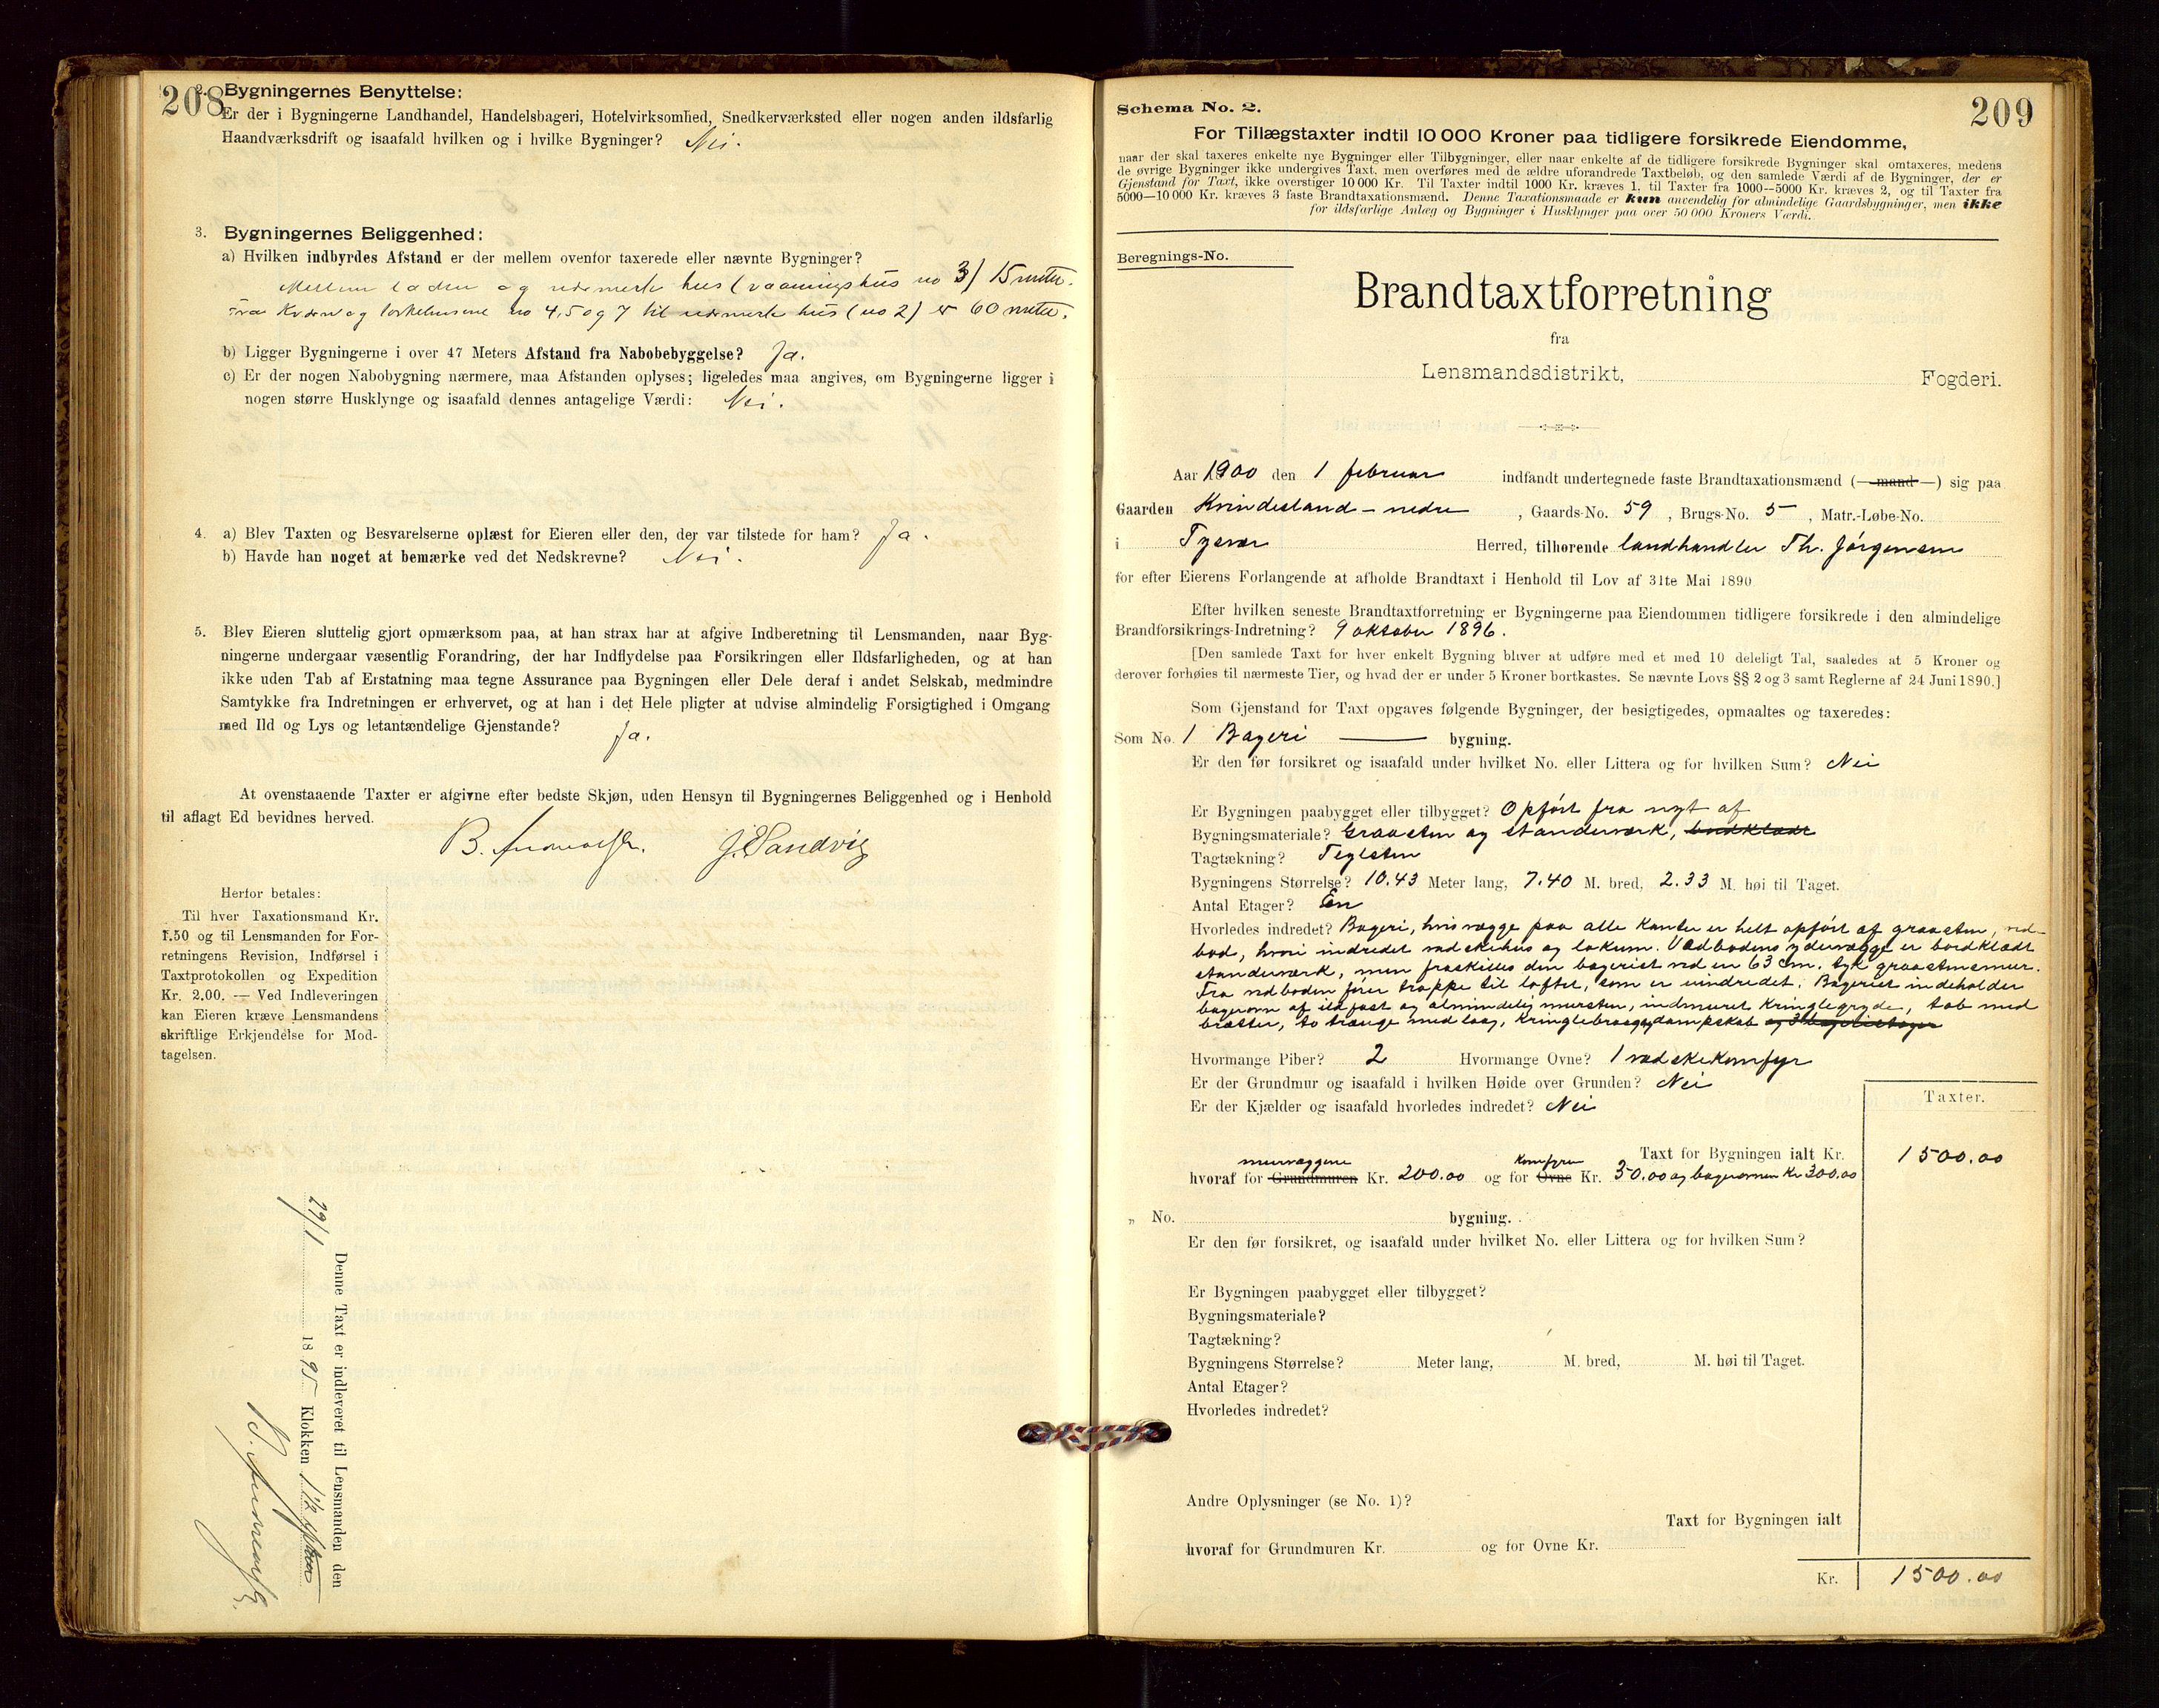 208
2. Bygningernes Benyttelse:
Er der i Bygningerne Landhandel, Handelsbageri, Hotelvirksomhed, Snedkerværksted eller nogen anden ildsfarlig
Haandværksdrift og isaafald hvilken og i hvilke Bygninger? Nei.
3. Bygningernes Beliggenhed:
a) Hvilken indbyrdes Afstand er der mellem ovenfor taxerede eller nævnte Bygninger?
Mellem laden og nærmeste hus (vaaningshus no 3) 15 meter.
Fra Kværn og tørkehusene no 4, 5 og 7 til nærmeste hus (no 2) er 60 meter.
b) Ligger Bygningerne i over 47 Meters Afstand fra Nabobebyggelse? Ja.
c) Er der nogen Nabobygning nærmere, maa Afstanden oplyses; ligeledes maa angives, om Bygningerne ligger i
nogen større Husklynge og isaafald dennes antagelige Værdi: Nei.
4. a) Blev Taxten og Besvarelserne oplæst for Eieren eller den, der var tilstede for ham? Ja.
b) Havde han noget at bemærke ved det Nedskrevne? Nei.
5. Blev Eieren sluttelig gjort opmærksom paa, at han strax har at afgive Indberetning til Lensmanden, naar Byg-
ningerne undergaar væsentlig Forandring, der har Indflydelse paa Forsikringen eller Ildsfarligheden, og at han
ikke uden Tab af Erstatning maa tegne Assurance paa Bygningen eller Dele deraf i andet Selskab, medmindre
Samtykke fra Indretningen er erhvervet, og at han i det Hele pligter at udvise almindelig Forsigtighed i Omgang
med Ild og Lys og letantændelige Gjenstande? Ja.
At ovenstaaende Taxter er afgivne efter bedste Skjøn, uden Hensyn til Bygningernes Beliggenhed og i Henhold
til aflagt Ed bevidnes herved.
B. J. Sandvig
Herfor betales:
Til hver Taxationsmand Kr.
1.50 og til Lensmanden for For-
retningens Revision, Indførsel i
Taxtprotokollen og Expedition
Kr. 2.00. — Ved Indleveringen
kan Eieren kræve Lensmandens
skriftlige Erkjendelse for Mod-
tagelsen.
Denne Taxt er indleveret til Lensmanden den
29/1 1895 Klokken 1 1/2
209
Schema No. 2.
For Tillægstaxter indtil 10 000 Kroner paa tidligere forsikrede Eiendomme,
naar der skal taxeres enkelte nye Bygninger eller Tilbygninger, eller naar enkelte af de tidligere forsikrede Bygninger skal omtaxeres, medens
de øvrige Bygninger ikke undergives Taxt, men overføres med de ældre uforandrede Taxtbeløb, og den samlede Værdi af de Bygninger, der er
Gjenstand for Taxt, ikke overstiger 10 000 Kr. Til Taxter indtil 1000 Kr. kræves 1, til Taxter fra 1000—5000 Kr. kræves 2, og til Taxter fra
5000—10 000 Kr. kræves 3 faste Brandtaxationsmænd. Denne Taxationsmaade er kun anvendelig for almindelige Gaardsbygninger, men ikke
for ildsfarlige Anlæg og Bygninger i Husklynger paa over 50 000 Kroners Værdi.
Beregnings-No.
Brandtaxtforretning
fra
Lensmandsdistrikt, Fogderi.
Aar 1900 den 1 februar indfandt undertegnede faste Brandtaxationsmænd (—mand—) sig paa
Gaarden Kvindesland - nedre, Gaards-No. 59, Brugs-No. 5, Matr.-Løbe-No.
i Tysvær Herred, tilhørende landhandler Th. Jørgensen
for efter Eierens Forlangende at afholde Brandtaxt i Henhold til Lov af 31te Mai 1890
Efter hvilken seneste Brandtaxtforretning er Bygningerne paa Eiendommen tidligere forsikrede i den almindelige
Brandforsikrings-Indretning? 9 oktober 1896.
[Den samlede Taxt for hver enkelt Bygning bliver at udføre med et med 10 deleligt Tal, saaledes at 5 Kroner og
derover forhøies til nærmeste Tier, og hvad der er under 5 Kroner bortkastes. Se nævnte Lovs §§ 2 og 3 samt Reglerne af 24 Juni 1890.]
Som Gjenstand for Taxt opgaves følgende Bygninger, der besigtigedes, opmaaltes og taxeredes:
Som No. 1 Bageri bygning.
Er den før forsikret og isaafald under hvilket No. eller Littera og for hvilken Sum? Nei
Er Bygningen paabygget eller tilbygget? Opført fra nyt af
Bygningsmateriale? Graasten og standeværk, bordklædt
Tagtækning? Teglsten
Bygningens Størrelse? 10.43 Meter lang, 7.40 M. bred, 2.33 M. høi til Taget.
Antal Etager? En
Hvorledes indredet? Bageri, hvis vægge paa alle kanter er helt opført af graasten, ved-
bod, hvori indredet vadskehus og lokum. Vedbodens ydervægge er bordklædt
standeværk, men fraskilles den bageriet ved en 63 cm. tyk graastensmur.
Fra vedboden fører trappe til loftet, som er uindredet. Bageriet indeholder
bagerovn af ildfast og almindelig mursten, indmuret kringlegryde, tob med
brætter, to trauge med laag, kringlebraage, dampskab og 3
Hvormange Piber? 2 Hvormange Ovne? 1 vadskekomfyr
Er der Grundmur og isaafald i hvilken Høide over Grunden? Nei
Er der Kjælder og isaafald hvorledes indredet? Nei
Taxter.
Taxt for Bygningen ialt Kr. 1500.00
murvæggene komfyren
hvoraf for Grundmuren Kr. 200.00 og for Ovne Kr. 30.00 og bagerovnen Kr 300.00
„ No. bygning.
Er den før forsikret, og isaafald under hvilket No. eller Littera og for hvilken Sum?
Er Bygningen paabygget eller tilbygget?
Bygningsmateriale?
Tagtækning?
Bygningens Størrelse? Meter lang, M. bred, M. høi til Taget.
Antal Etager?
Hvorledes indredet?
Andre Oplysninger (se No. 1)?
Taxt for Bygningen ialt
hvoraf for Grundmuren Kr. og for Ovne Kr.
Kr. 1500.00